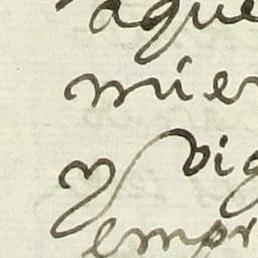 aque
mier
y vig
empr